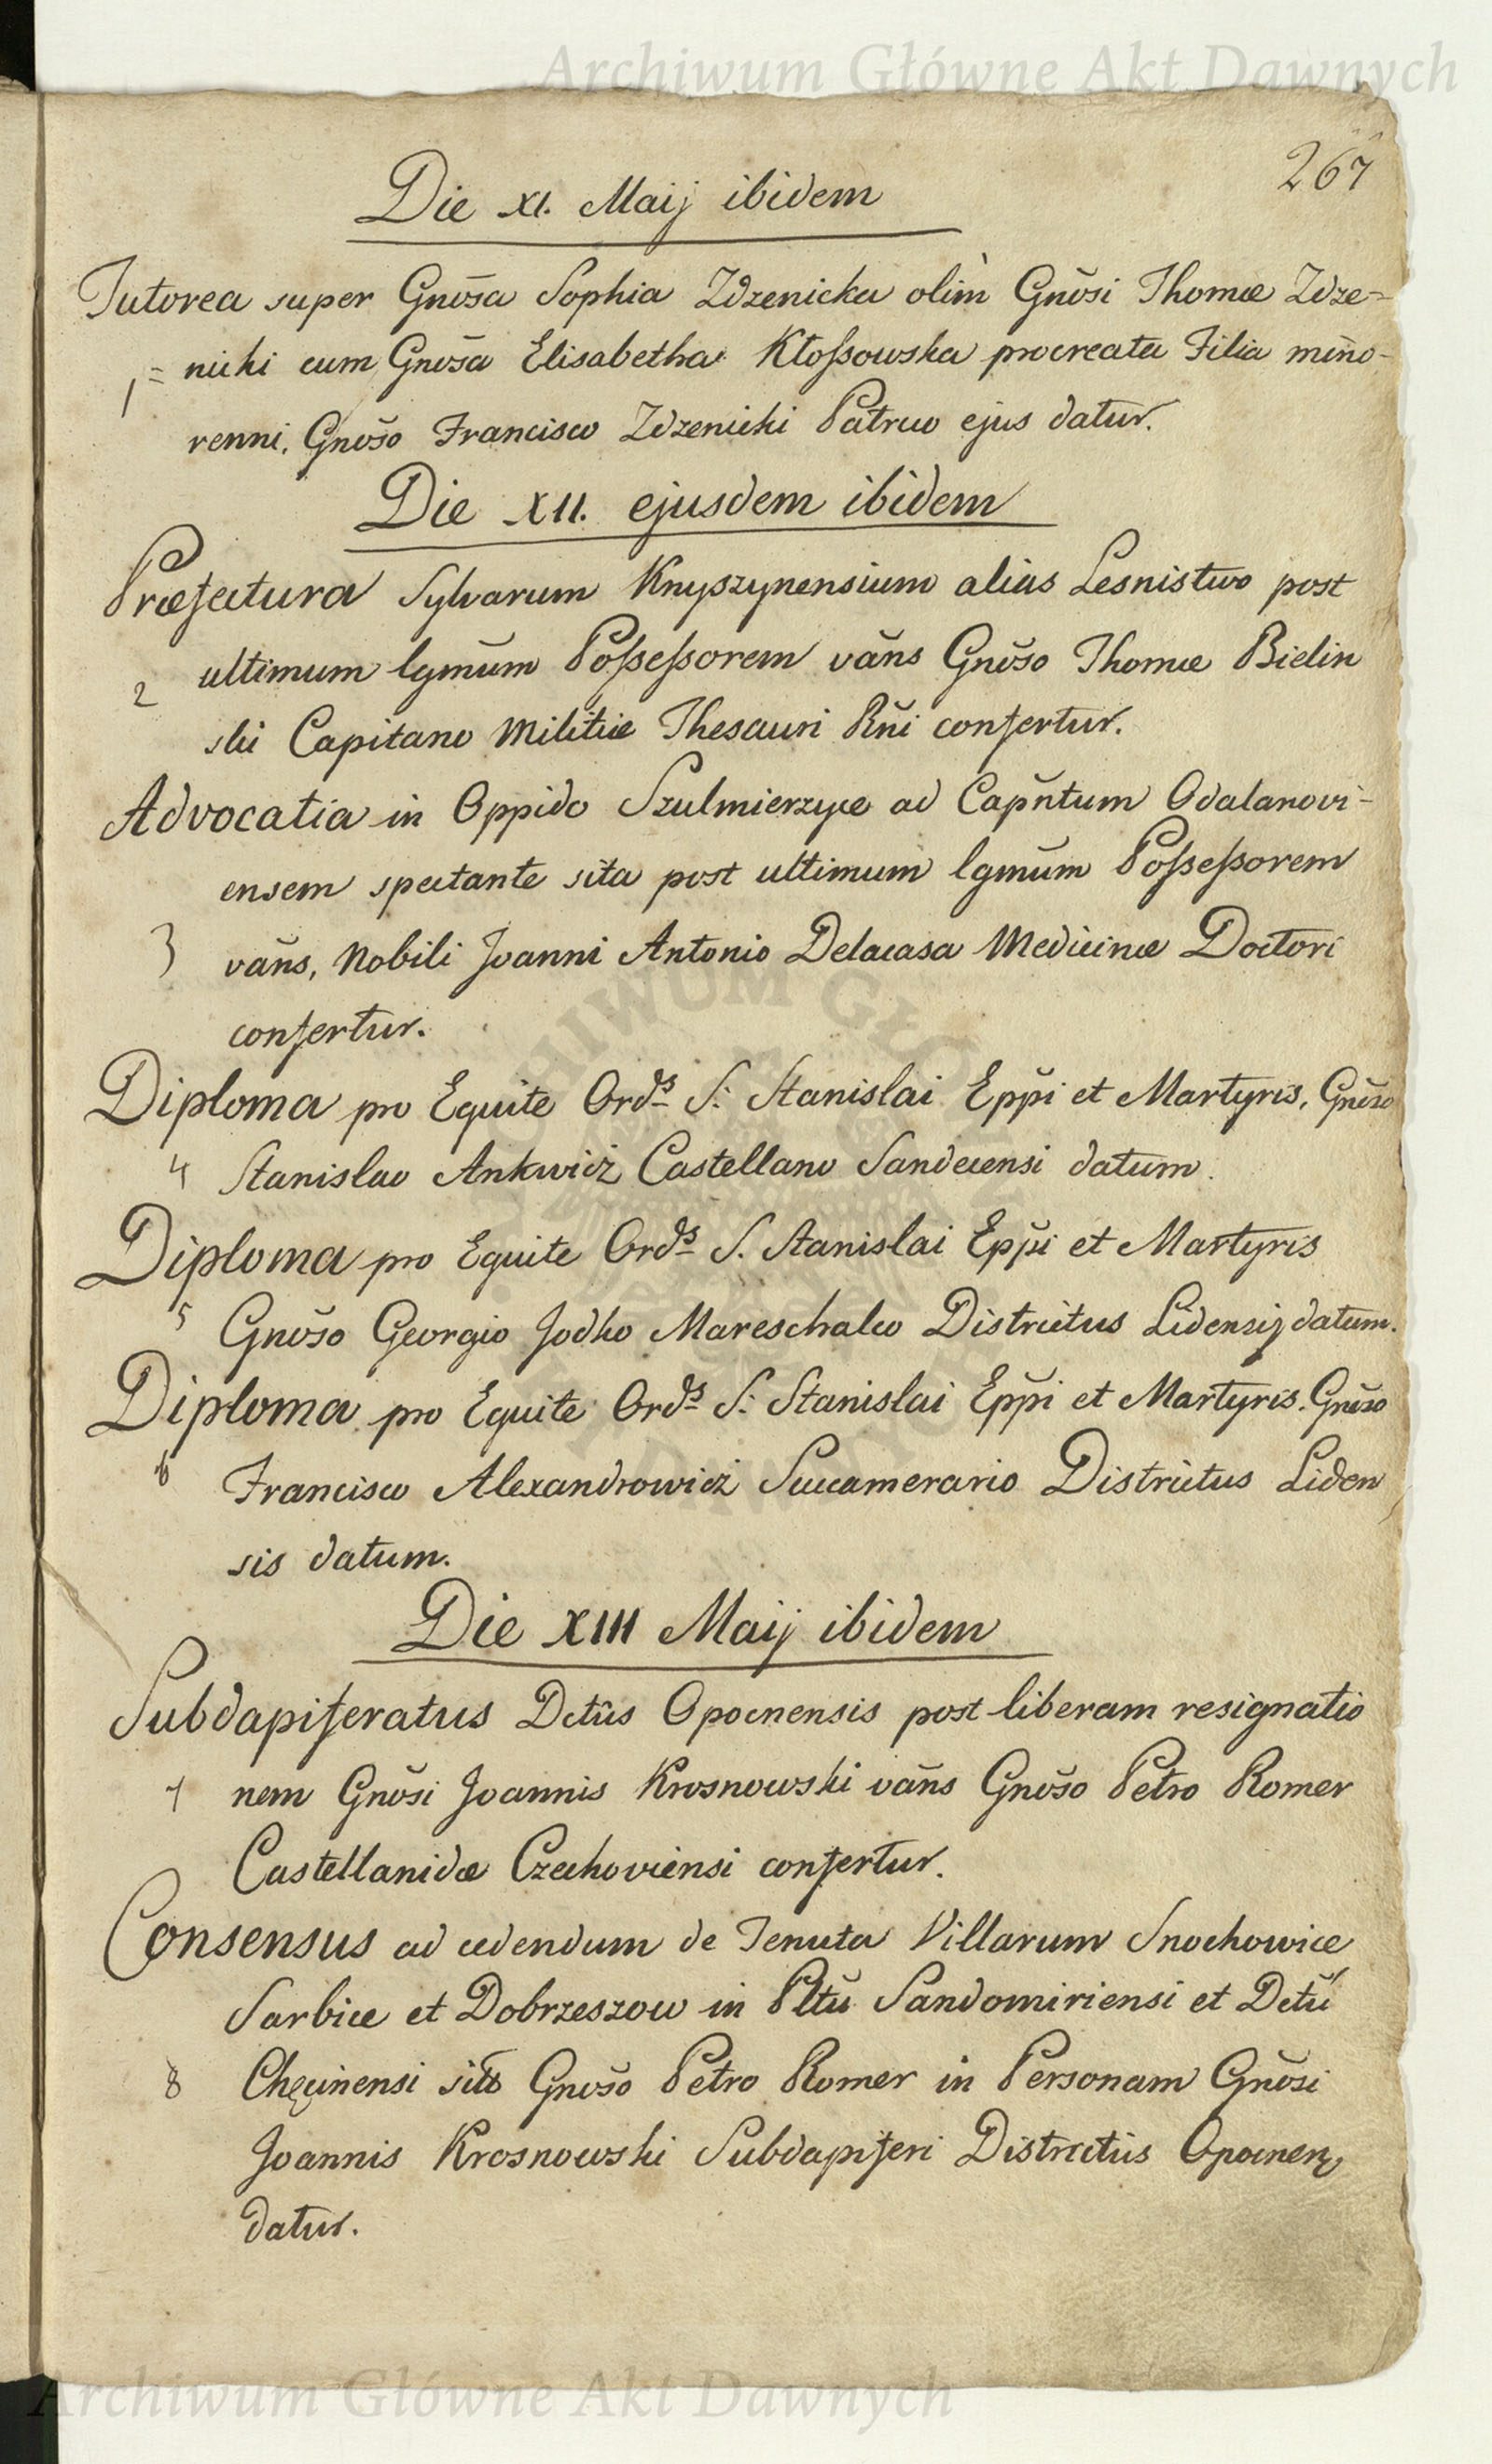 Archiwum Główne Akt Dawnych
267
Die XI. Maij ibidem
Tutorea super Gnōsa Sophia Zdzenicka olim Gnōsi Thomæ Zdze=
1 = nicki cum Gnōsa Elisabetha Kłoſsowska procreata Filia mino-
renni, Gnōso Francisco Zdzenicki Patruo ejus datur.
Die XII. ejusdem ibidem
Præfectura Sylvarum Knyszynensium alias Lesnistwo post
ultimum lgmūm Poſseſsorem vāns Gnōso Thomæ Bielin
2
ski Capitano Militiæ Thesauri Rñi confertur.
Advocatia in Oppido Szulmierzyce ad Capñtum Odalanovi-
ensem spectante sita post ultimum lgmūm Poſseſsorem
3 vāns, Nobili Joanni Antonio Delacasa Medicinæ Doctori
confertur.
Diploma pro Equite Ord̲s S: Stanislai Epp̃i et Martyris, Gnōso
4 Stanislao Ankwicz Castellano Sandecensi datum.
Diploma pro Equite Ord̲s S. Stanislai Epp̃i et Martyris
5 Gnōso Georgio Jodko Mareschalco Districtus Lidensis datum.
Diploma pro Equite Ord̲s S: Stanislai Epp̃i et Martyris. Gnōso
6 Francisco Alexandrowicz Succamerario Districtus Liden
sis datum.
Die XIII Maij ibidem
Subdapiferatus Dctūs Opocnensis post liberam resignatio
7 nem Gnōsi Joannis Krosnowski vāns Gnōso Petro Romer
Castellanidæ Czechoviensi confertur.
Consensus ad cedendum de Tenuta Villarum Snochowice
Sarbice et Dobrzeszow in Pltū Sandomiriensi et Dctū
8 Chęcinensi sitis Gnōso Petro Romer in Personam Gnōsi
Joannis Krosnowski Subdapiferi Districtus Opocnen
datur.
Archiwum Główne Akt Dawnych